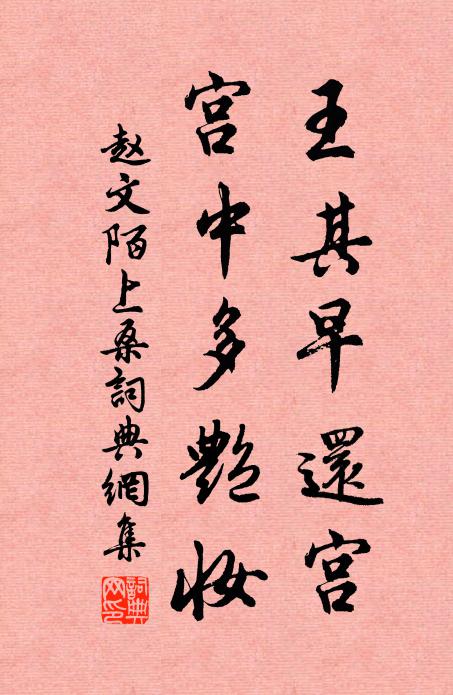 王其早還宮
宮中多艷妝
赵文陌上桑詞典網集
詞典網印